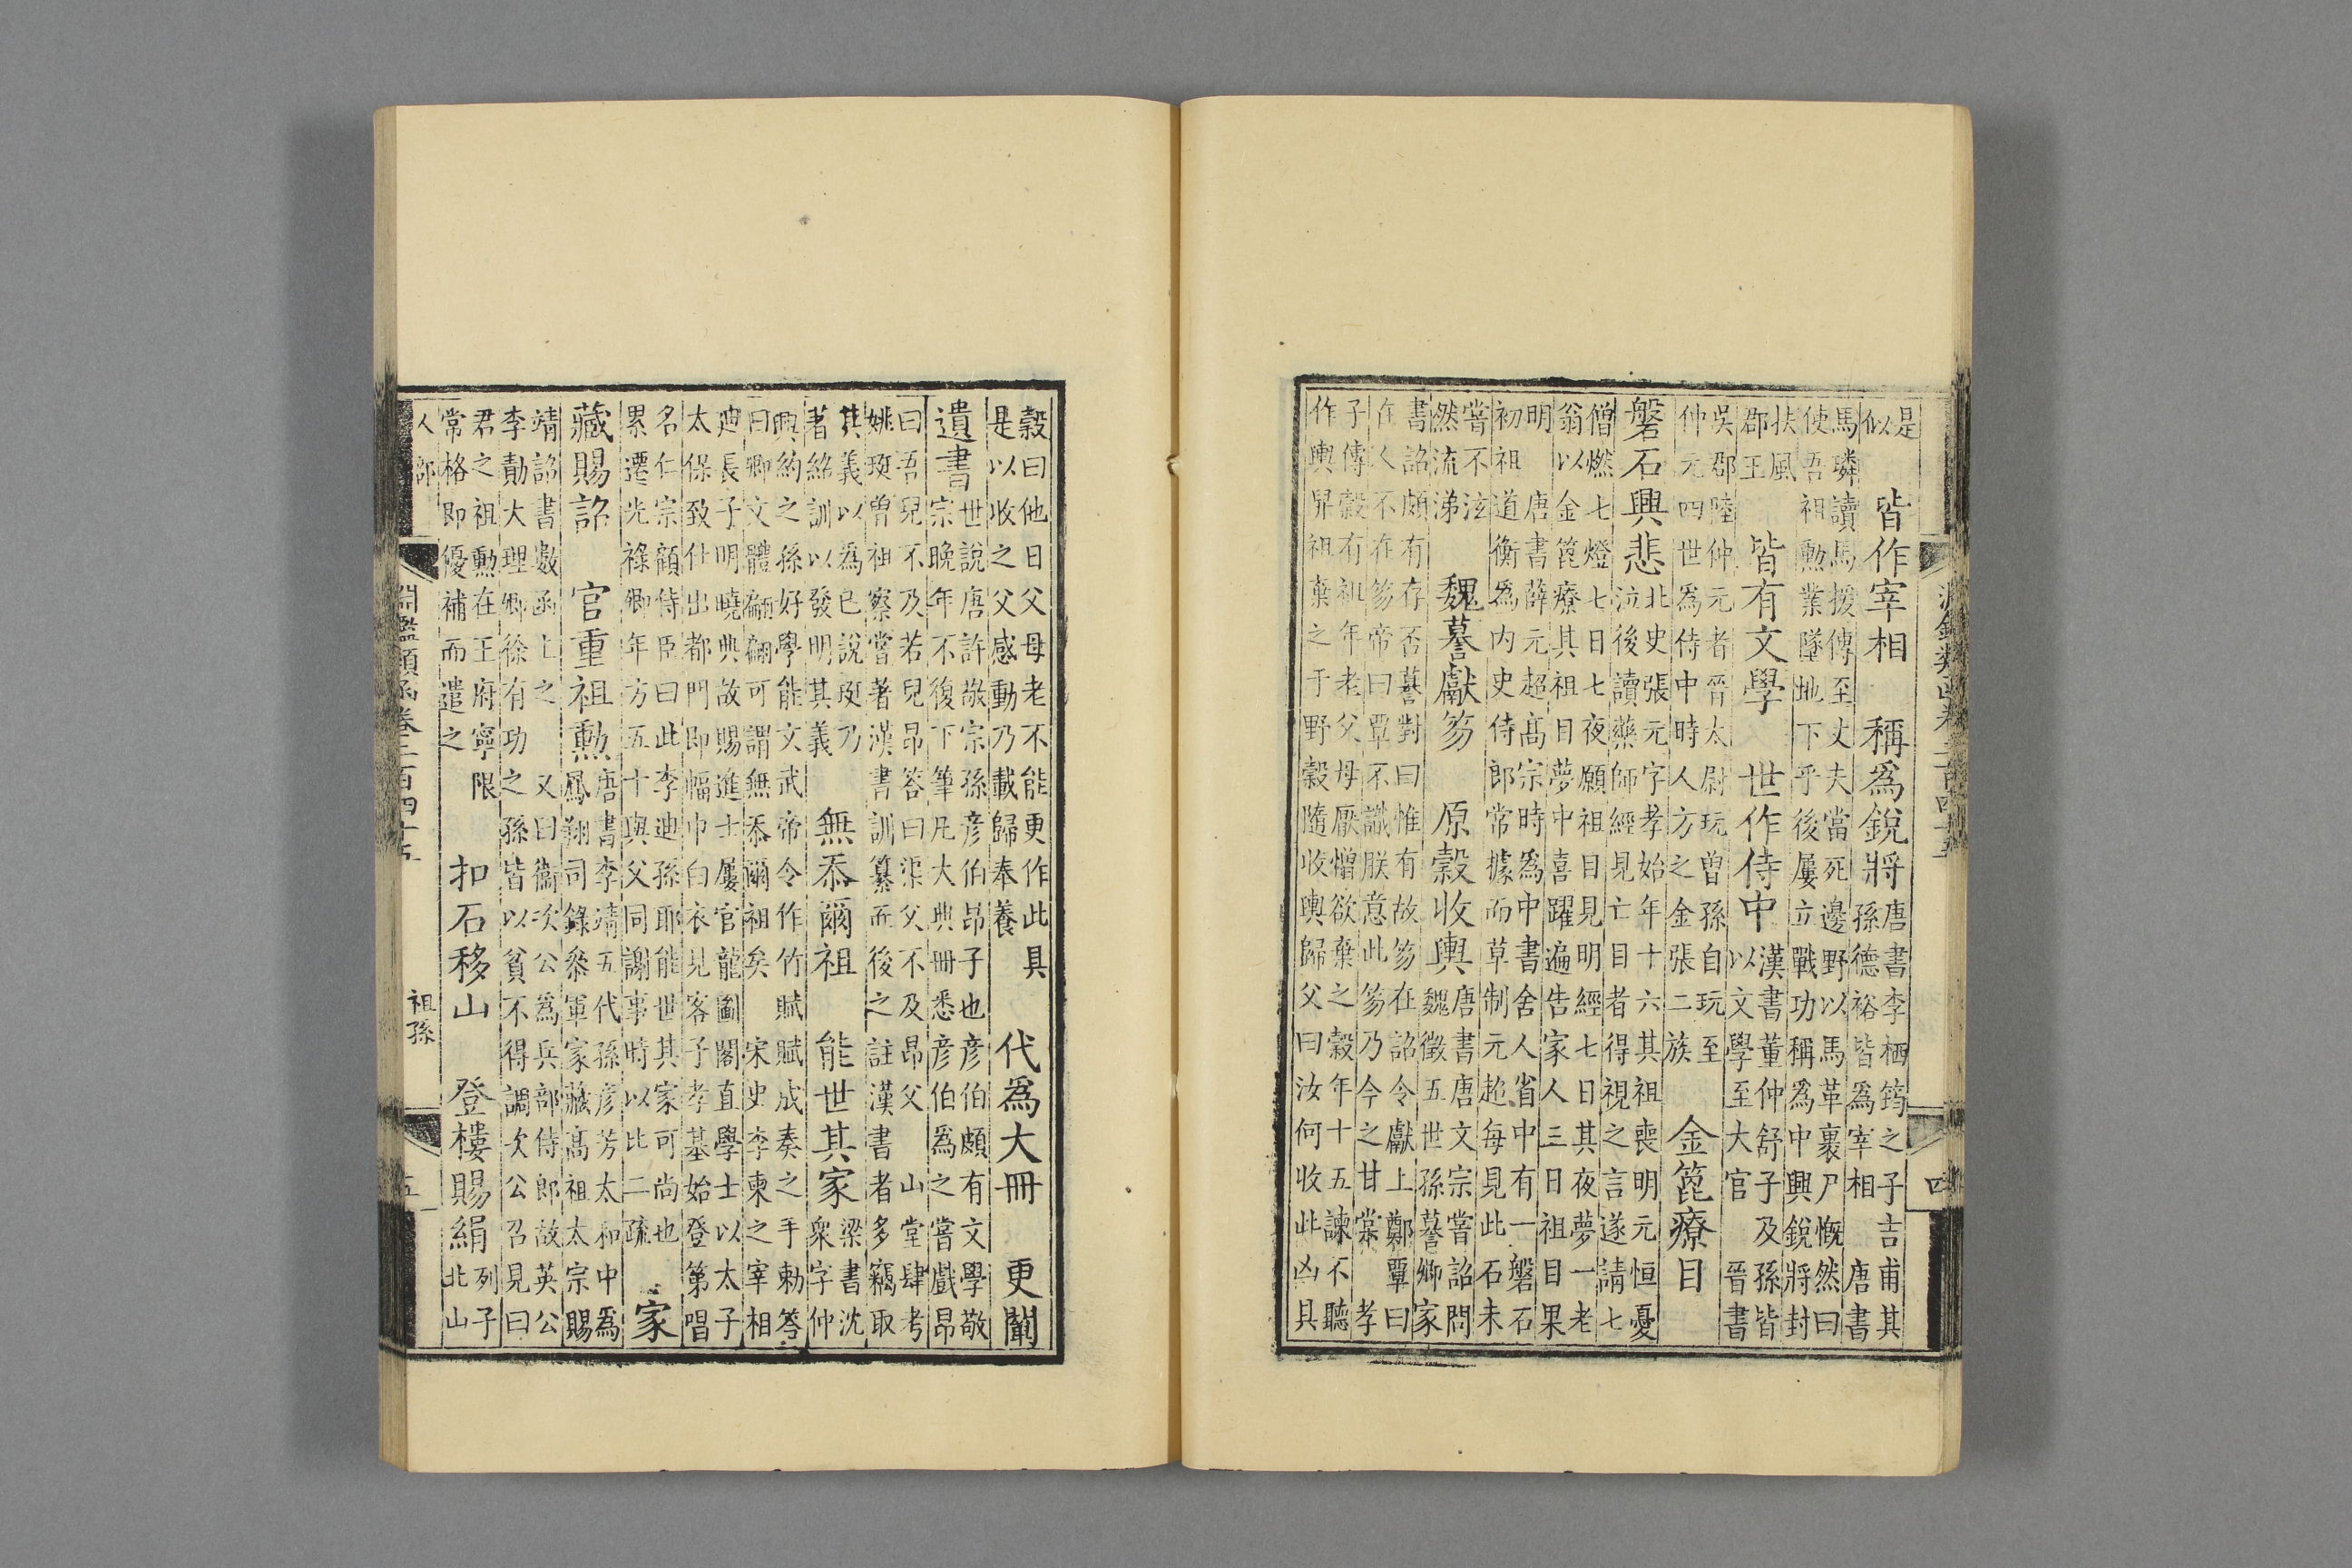 淵鑑類函卷二百四十五
四
是
似
皆作宰相
稱為銳將
唐書李栖筠之子吉甫其
孫德裕皆為宰相 唐書
馬璘讀馬援傳至丈夫當死邊野以馬革裹尸慨然曰
使吾祖勲業墜地下乎後屢立戰功稱為中興銳將封
扶風
郡王
皆有文學
世作侍中
漢書董仲舒子及孫皆
以文學至大官 晉書
吳郡陸仲元者晉太尉玩曾孫自玩至
仲元四世為侍中時人方之金張二族
金篦療目
磐石興悲
北史張元字孝始年十六其祖喪明元恒憂
泣後讀藥師經見亡目者得視之言遂請七
僧燃七燈七日七夜願祖目見明經七日其夜夢一老
翁以金篦療其祖目夢中喜躍遍告家人三日祖目果
明 唐書薛元超高宗時為中書舍人省中有一磐石
初祖道衡為内史侍郎常據而草制元超每見此石未
嘗不泫
然流涕
魏謩獻笏
原穀收輿
唐書唐文宗嘗詔問
魏徵五世孫謩卿家
書詔頗有存否謩對曰惟有故笏在詔令獻上鄭覃曰
在人不在笏帝曰覃不識朕意此笏乃今之甘棠 孝
子傳穀有祖年老父母厭憎欲棄之穀年十五諫不聽
作輿舁祖棄之于野穀隨收輿歸父曰汝何收此凶具
穀曰他日父母老不能更作此具
是以收之父感動乃載歸奉養
代為大冊
更闡
遺書
世說唐許敬宗孫彦伯昂子也彦伯頗有文學敬
宗晚年不復下筆凡大典冊悉彦伯為之嘗戲昂
曰吾兒不及若兒昂答曰渠父不及昂父 山堂肆考
姚珽曾祖察嘗著漢書訓纂而後之註漢書者多竊取
其義以為已說珽乃
著紹訓以發明其義
無忝爾祖
能世其家
梁書沈
衆字仲
興約之孫好學能文武帝令作竹賦賦成奏之手勅答
曰卿文體翩翩可謂無忝爾祖矣 宋史李柬之宰相
迪長子明曉典故賜進士屢官龍圖閣直學士以太子
太保致仕出都門即幅巾白衣見客子孝基始登第唱
名仁宗顧侍臣曰此李迪孫耶能世其家可尚也
累遷光祿卿年方五十與父同謝事時以比二疏
家
藏賜詔
官重祖勲
唐書李靖五代孫彦芳太和中為
鳳翔司錄叅軍家藏高祖太宗賜
靖詔書數函上之 又曰衛次公為兵部侍郎故英公
李勣大理卿徐有功之孫皆以貧不得調次公召見曰
君之祖勲在王府寧限
常格即優補而遣之
扣石移山
登樓賜絹
列子
北山
人部
淵鑑類函卷二百四十五
祖孫
五